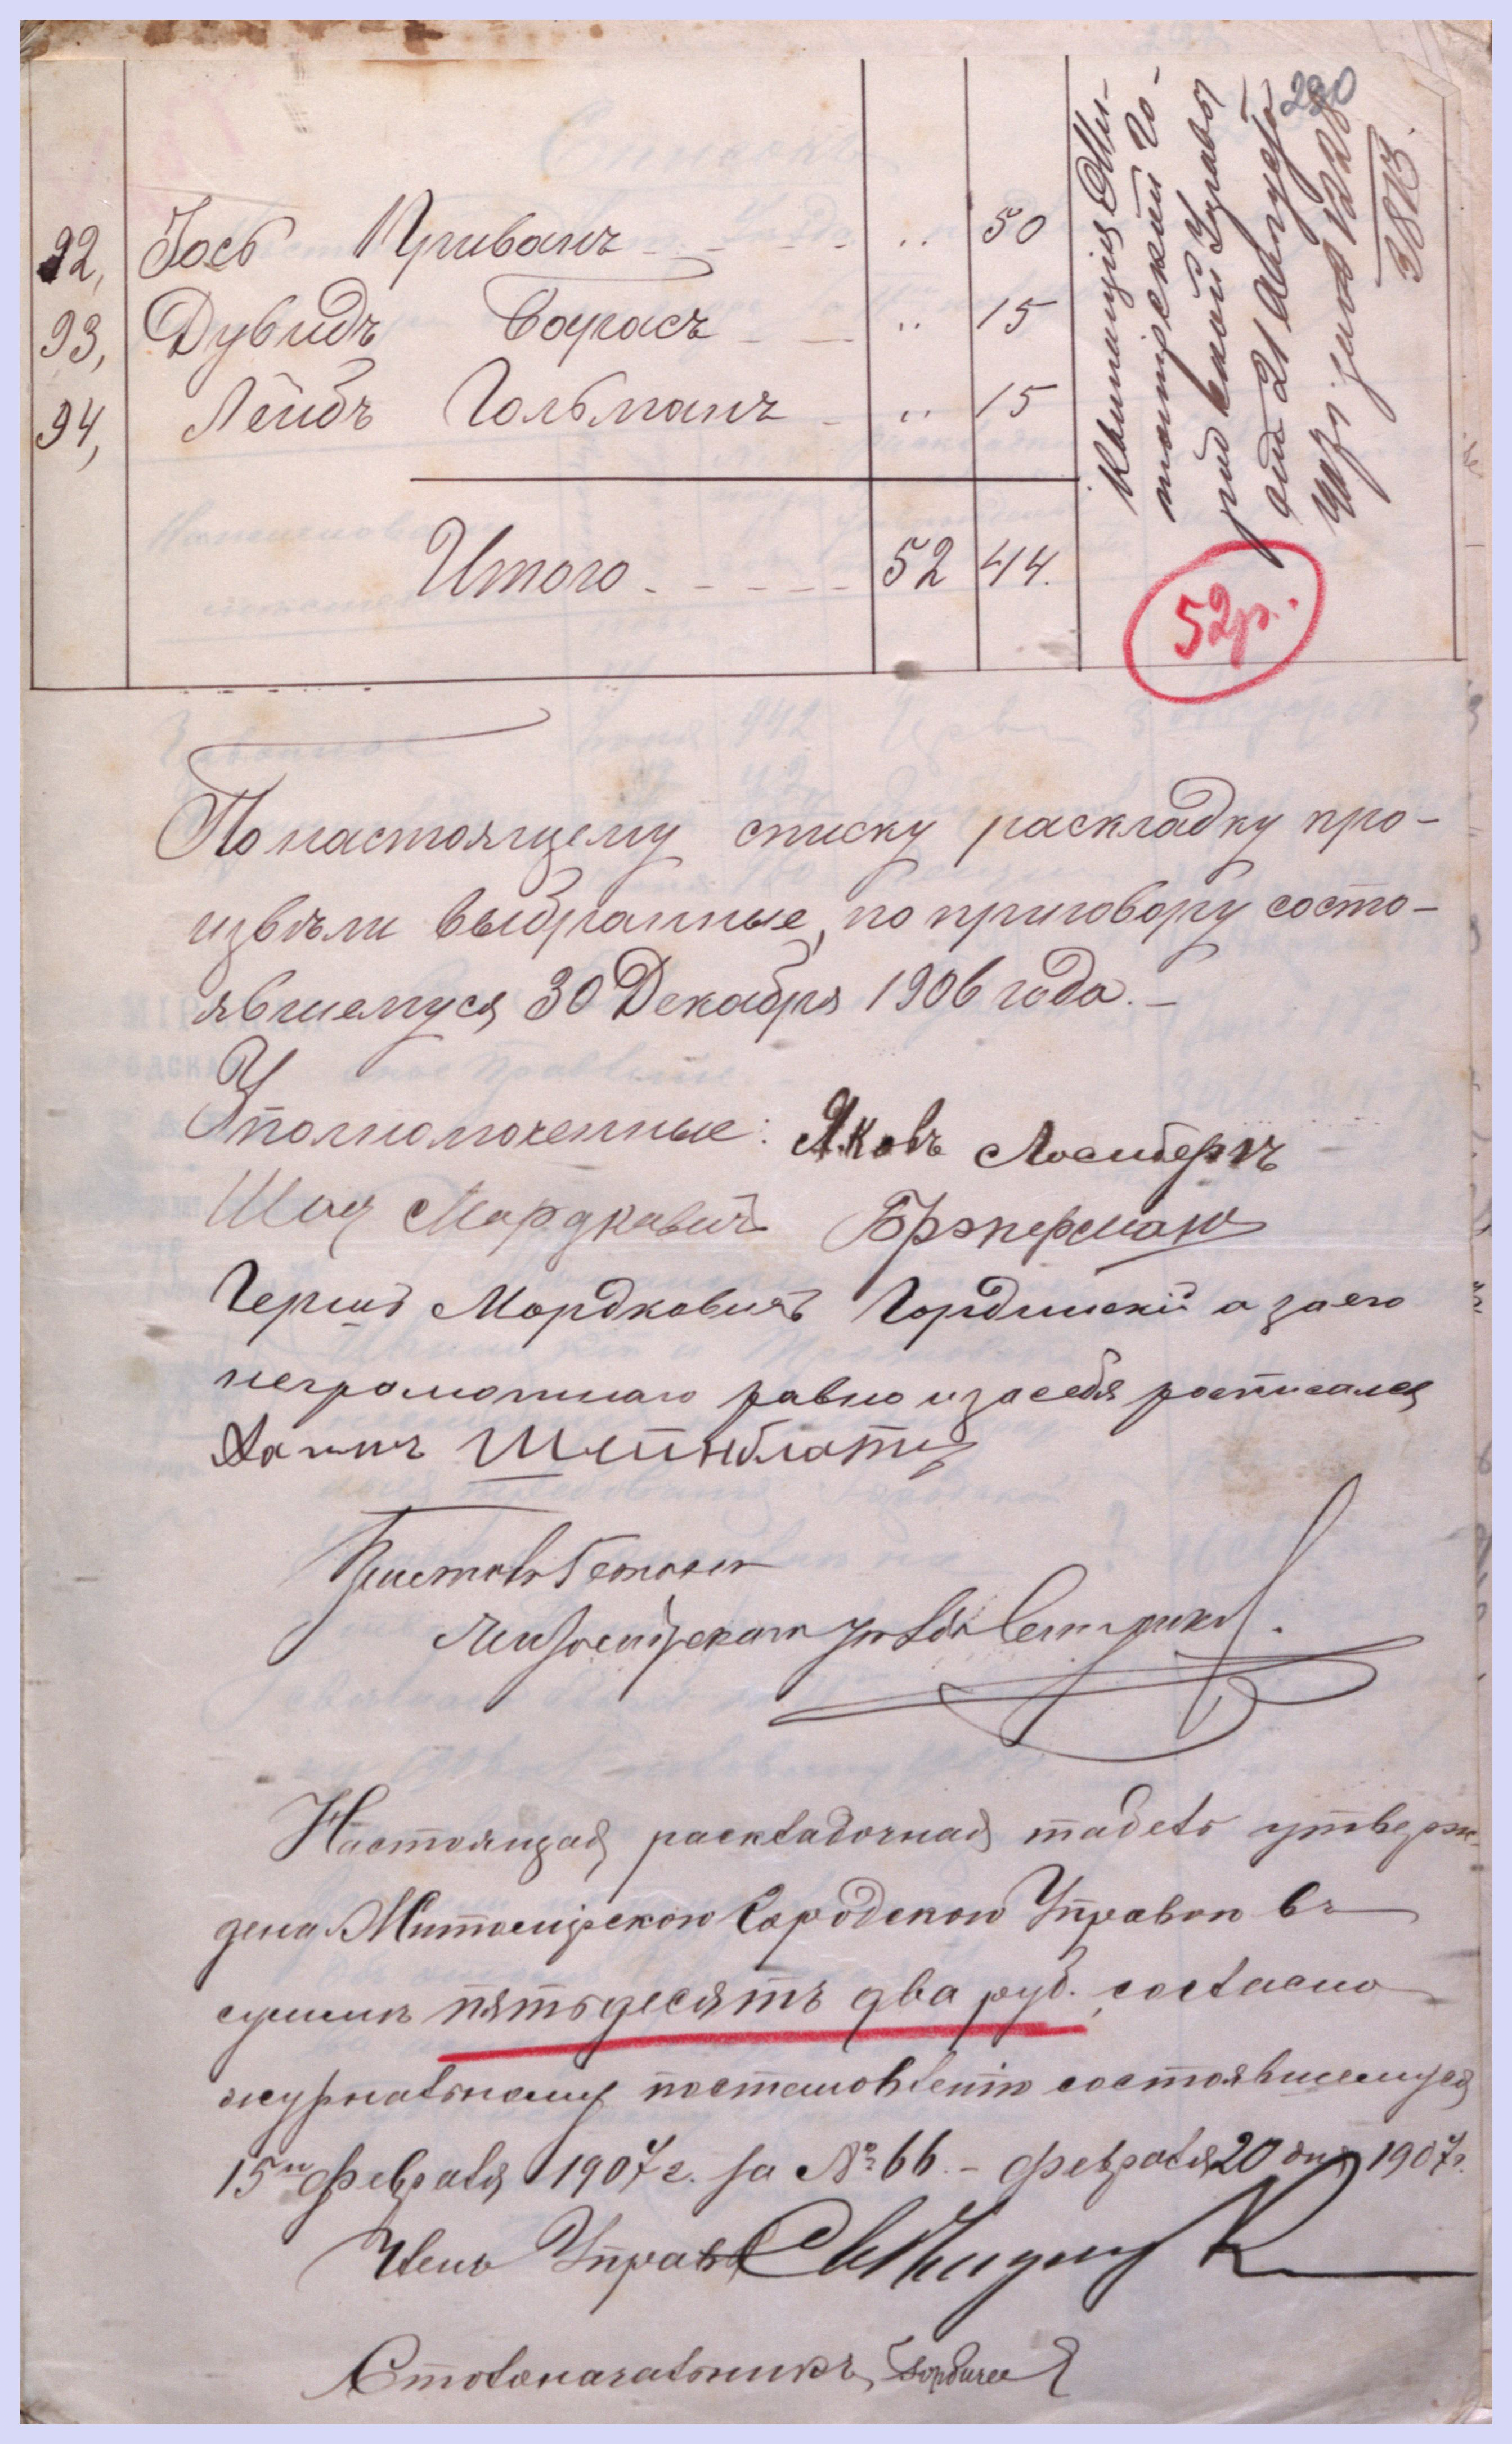 230
92, Іось Приванъ - - - - " 50
93, Дувидъ Борасъ - - " 15
94, Лейбъ Гольманъ - " 15
Итого - - - - - 52 44.
Квитанція Жи-
томірской Го-
родской Управы
отъ 21 Августа
1907 года № 1228
3813.
52 р.
По настоящему списку раскладку про-
извѣли выбранные, по приговору состо-
явшемуся 30 Декабря 1906 года. -
Уполномоченные: Яковъ Лосмбергъ
Шая Мордковичъ
Гершъ Мордковичъ Гордински а за его
неграмотнаго равно и за себя росписался
Хаимъ Шейнблатъ
Приставъ
Житомірскаго уѣзда
Настоящая раскладочная табель утверж-
дена Житомірскою Городскою Управою въ
суммѣ пятьдесятъ два руб. согласно
журнальному постановленію состоявшемуся
15го февраля 1907 г. за № 66. - февраля 20 дня 1907 г.
Членъ Управы
Столоначальникъ